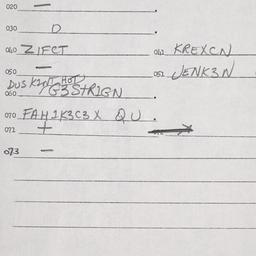 020 —
030 D .
040 ZIFCT 041 KREXCN
050 — 051 JENK3N
DUSK2NT HOT
060 / G3STRIGN .
070 FAH1K3C3X QU .
072 +
073 —